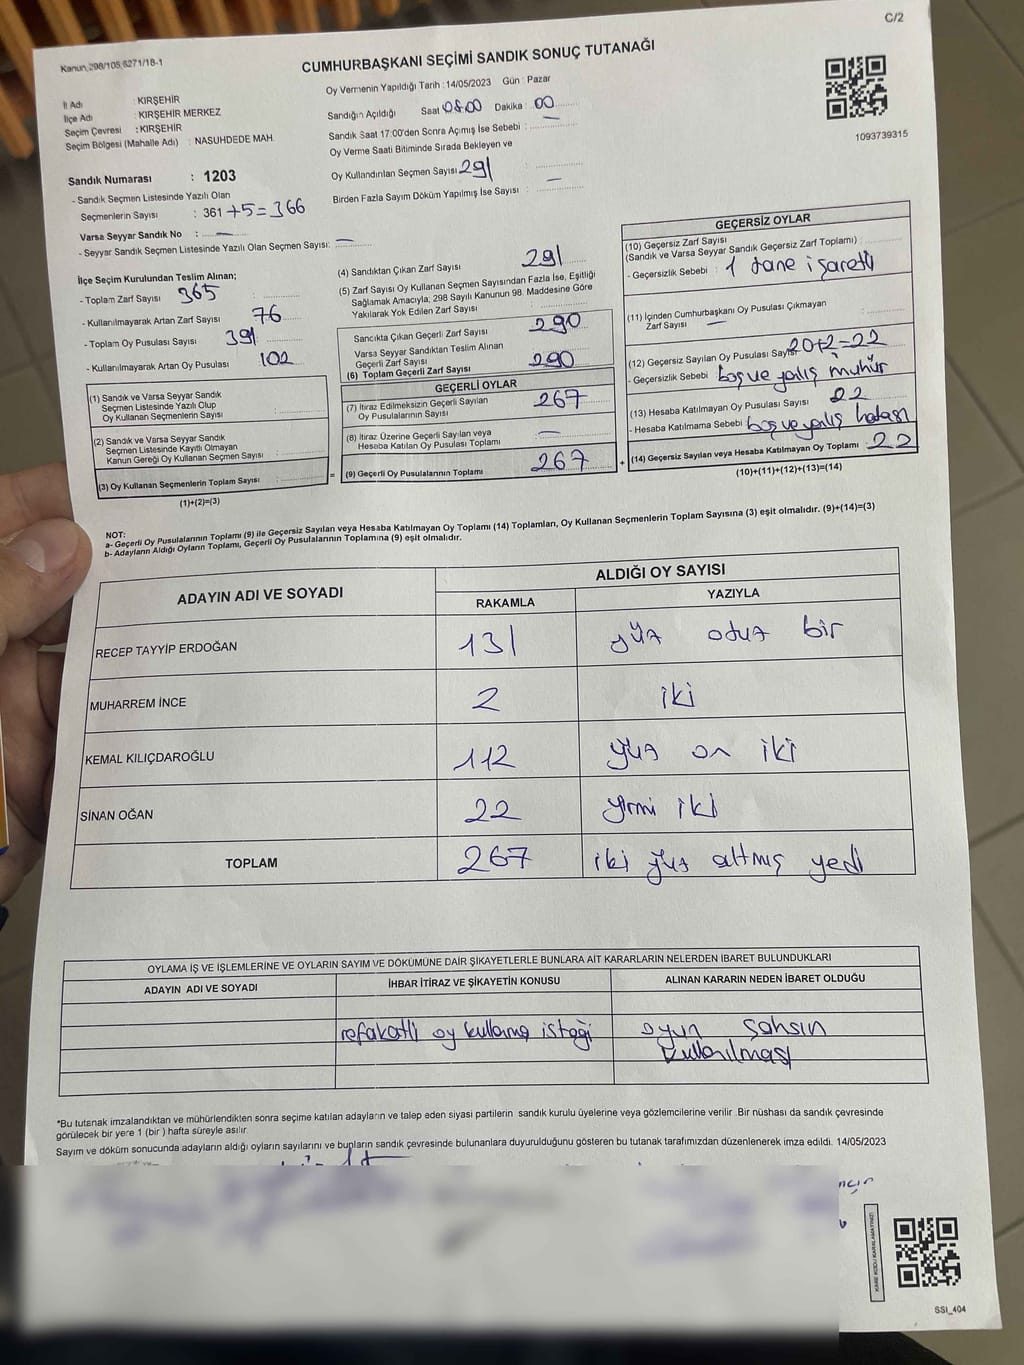 C/2
Kanun,298/105,6271/18-1
CUMHURBAŞKANI SEÇİMİ SANDIK SONUÇ TUTANAĞI
İl Adı : KIRŞEHİR
İlçe Adı : KIRŞEHİR MERKEZ
Seçim Çevresi : KIRŞEHİR
Seçim Bölgesi (Mahalle Adı) : NASUHDEDE MAH.
Oy Vermenin Yapıldığı Tarih :14/05/2023 Gün : Pazar
Sandığın Açıldığı Saat 08:00 Dakika : 00
Sandık Saat 17:00'den Sonra Açımış İse Sebebi :
Oy Verme Saati Bitiminde Sırada Bekleyen ve
Oy Kullandırılan Seçmen Sayısı 291
Birden Fazla Sayım Döküm Yapılmış İse Sayısı : —
1093739315
Sandık Numarası : 1203
- Sandık Seçmen Listesinde Yazılı Olan
Seçmenlerin Sayısı : 361 +5=366
Varsa Seyyar Sandık No : —
- Seyyar Sandık Seçmen Listesinde Yazılı Olan Seçmen Sayısı: —
İlçe Seçim Kurulundan Teslim Alınan;
- Toplam Zarf Sayısı 365
- Kullanılmayarak Artan Zarf Sayısı 76
- Toplam Oy Pusulası Sayısı 391
- Kullanılmayarak Artan Oy Pusulası 102
(1) Sandık ve Varsa Seyyar Sandık
Seçmen Listesinde Yazılı Olup
Oy Kullanan Seçmenlerin Sayısı :
(2) Sandık ve Varsa Seyyar Sandık
Seçmen Listesinde Kayıtlı Olmayan
Kanun Gereği Oy Kullanan Seçmen Sayısı :
(3) Oy Kullanan Seçmenlerin Toplam Sayısı :
(1)+(2)=(3)
(4) Sandıktan Çıkan Zarf Sayısı : 291
(5) Zarf Sayısı Oy Kullanan Seçmen Sayısından Fazla İse, Eşitliği
Sağlamak Amacıyla; 298 Sayılı Kanunun 98. Maddesine Göre
Yakılarak Yok Edilen Zarf Sayısı :
Sandıkta Çıkan Geçerli Zarf Sayısı : 290
Varsa Seyyar Sandıktan Teslim Alınan
Geçerli Zarf Sayısı :
(6) Toplam Geçerli Zarf Sayısı : 290
GEÇERLİ OYLAR
(7) İtiraz Edilmeksizin Geçerli Sayılan
Oy Pusulalarının Sayısı : 267
(8) İtiraz Üzerine Geçerli Sayılan veya
Hesaba Katılan Oy Pusulası Toplamı : —
= (9) Geçerli Oy Pusulalarının Toplamı : 267 +
GEÇERSİZ OYLAR
(10) Geçersiz Zarf Sayısı
(Sandık ve Varsa Seyyar Sandık Geçersiz Zarf Toplamı) :
- Geçersizlik Sebebi : 1 tane işaretli
(11) İçinden Cumhurbaşkanı Oy Pusulası Çıkmayan
Zarf Sayısı —
(12) Geçersiz Sayılan Oy Pusulası Sayısı: 20+2=22
- Geçersizlik Sebebi boş ve yanlış mühür
(13) Hesaba Katılmayan Oy Pusulası Sayısı : 22
- Hesaba Katılmama Sebebi : boş ve yanlış hatası
(14) Geçersiz Sayılan veya Hesaba Katılmayan Oy Toplamı : 22
(10)+(11)+(12)+(13)=(14)
NOT:
a- Geçerli Oy Pusulalarının Toplamı (9) ile Geçersiz Sayılan veya Hesaba Katılmayan Oy Toplamı (14) Toplamları, Oy Kullanan Seçmenlerin Toplam Sayısına (3) eşit olmalıdır. (9)+(14)=(3)
b- Adayların Aldığı Oyların Toplamı, Geçerli Oy Pusulalarının Toplamına (9) eşit olmalıdır.
ADAYIN ADI VE SOYADI ALDIĞI OY SAYISI
RAKAMLA YAZIYLA
RECEP TAYYİP ERDOĞAN 131 yüz otuz bir
MUHARREM İNCE 2 iki
KEMAL KILIÇDAROĞLU 112 yüz on iki
SİNAN OĞAN 22 yirmi iki
TOPLAM 267 iki yüz altmış yedi
OYLAMA İŞ VE İŞLEMLERİNE VE OYLARIN SAYIM VE DÖKÜMÜNE DAİR ŞİKAYETLERLE BUNLARA AİT KARARLARIN NELERDEN İBARET BULUNDUKLARI
ADAYIN ADI VE SOYADI İHBAR İTİRAZ VE ŞİKAYETİN KONUSU ALINAN KARARIN NEDEN İBARET OLDUĞU
refakatli oy kullanma isteği oyun şahsın
kullanılması
*Bu tutanak imzalandıktan ve mühürlendikten sonra seçime katılan adayların ve talep eden siyasi partilerin sandık kurulu üyelerine veya gözlemcilerine verilir. Bir nüshası da sandık çevresinde
görülecek bir yere 1 (bir ) hafta süreyle asılır.
Sayım ve döküm sonucunda adayların aldığı oyların sayılarını ve bunların sandık çevresinde bulunanlara duyurulduğunu gösteren bu tutanak tarafımızdan düzenlenerek imza edildi. 14/05/2023
KARE KODU KARALAMAYINIZ!
SSI_404